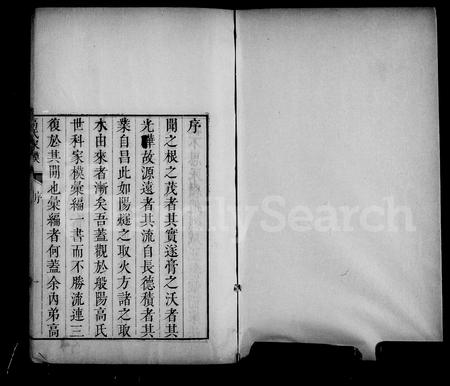 序
聞之根之茂者其實遂膏之沃者其
光曄故源遠者其流自長德積者其
業自昌此如陽燧之取火方諸之取
水由來者漸矣吾蓋觀於般陽高氏
世科家模彙編一書而不勝流連三
復於其間也彙編者何蓋余內弟高
序
FamilySearch